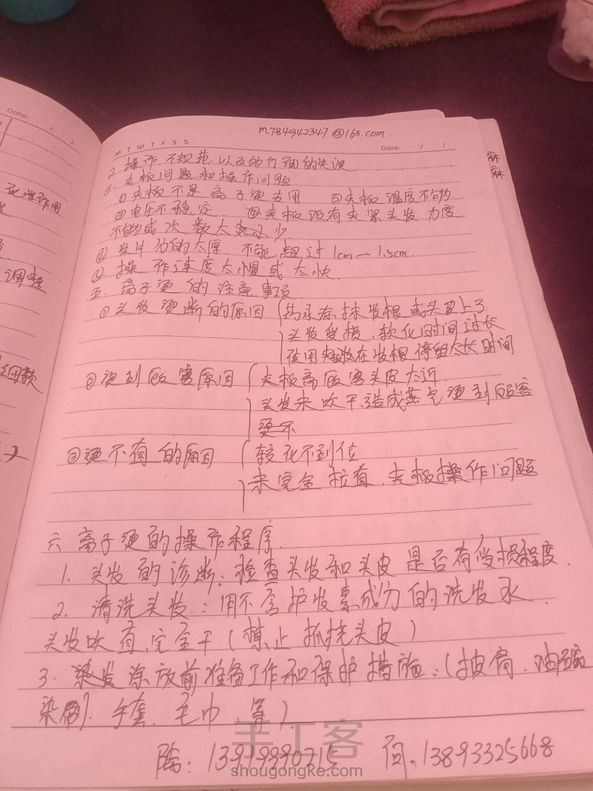 m784942347@163.com
M T W T F S S
Date: / /
2. 操作不规范以及的失误
3. 夹板问题和操作问题
①夹板不是离子烫专用 ②夹板温度不够
③电压不稳定 ④夹板没有夹紧头发力度
不够或次数太少
⑤发片分的太厚,不能超过1cm—1.5cm.
⑥操作速度太慢或太快
五、离子烫的注意事项
①头发烫断的原因 药水涂抹发根或头皮上了
头发受损,软化时间过长
使用夹板在发根停留太长时间
②烫到顾客原因 夹板离顾客头皮太近
头发未吹干,造成蒸气烫到顾客
③烫不直的原因 软化不到位
未完全拉直,夹板操作问题
六 离子烫的操作程序
1. 头发的诊断:检查头发和头皮是否有受损程度.
2. 清洗头发:用不含护发素成分的洗发水
头发吹直,完全干(禁止抓挠头皮)
3. 涂放前准备工作和保护措施:(披肩,
染刷.手套.毛巾 等)
陶: 13919390215 闫. 13893325668
手工客
shougongke.com
Date:
调整
麻
麻